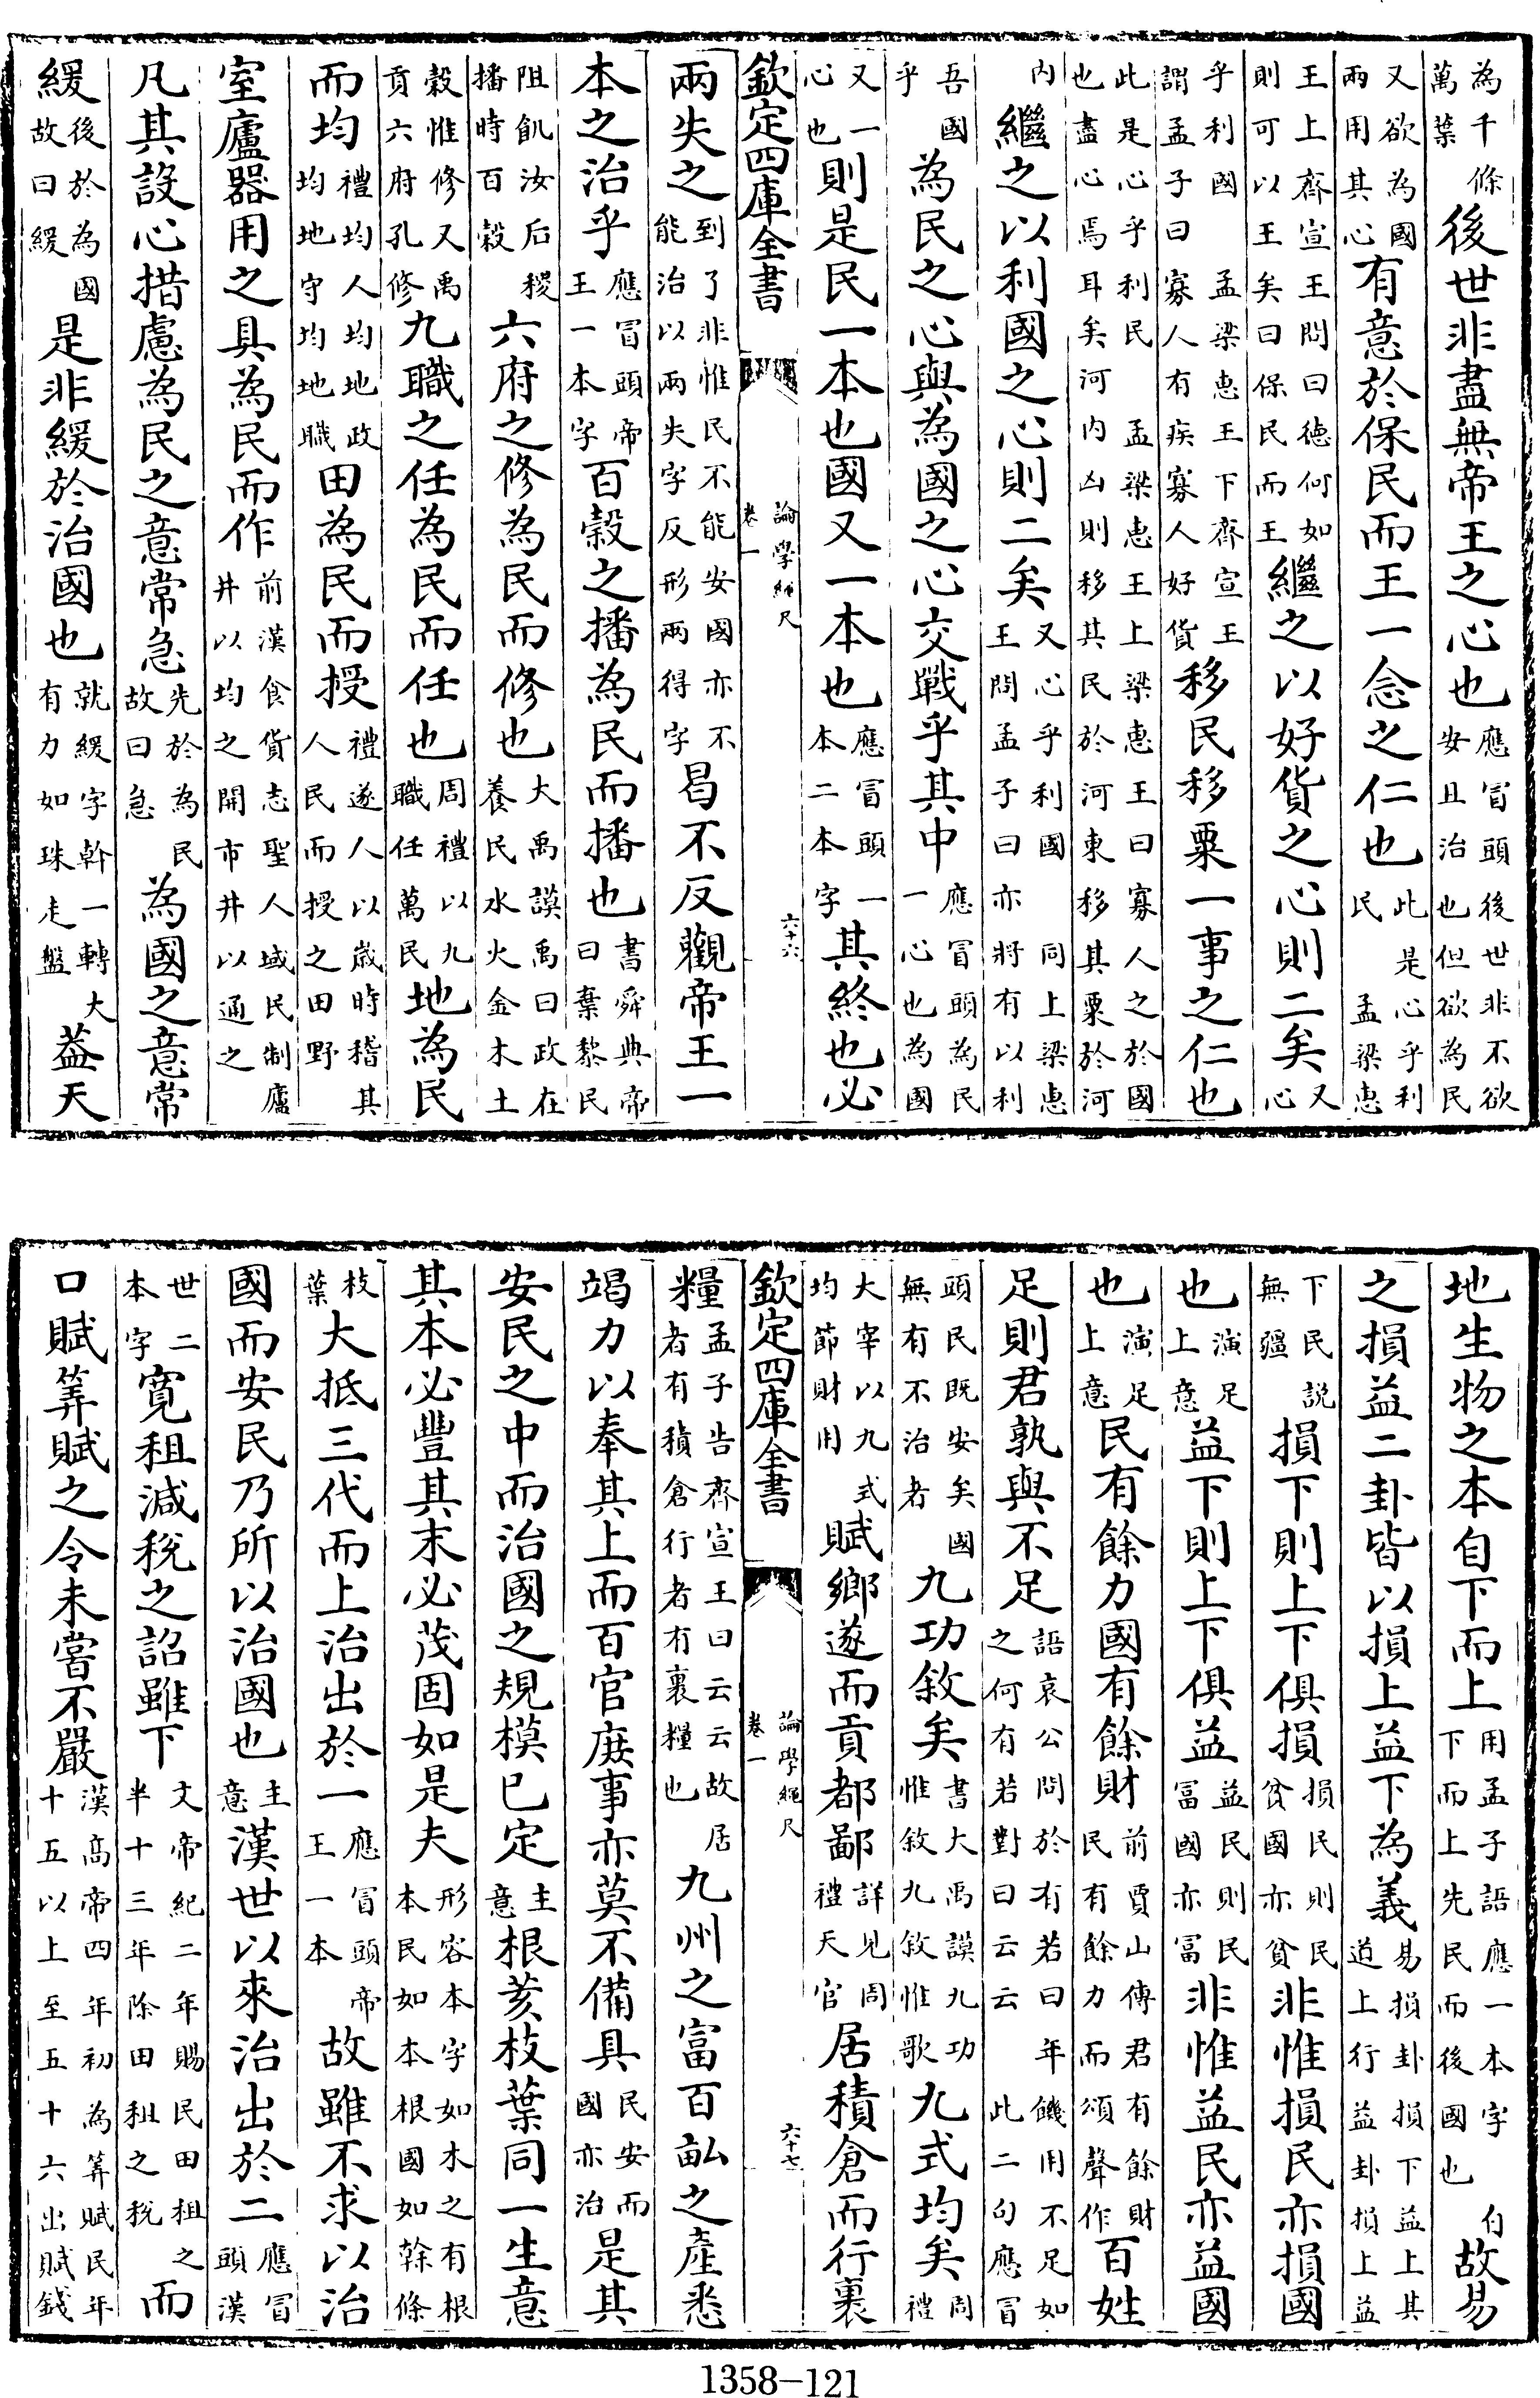 為千條萬葉後世非盡無帝王之心也應冒頭後世非不欲安且治也但欲為民
又欲為國兩用其心有意於保民而王一念之仁也此是心乎利民孟梁惠
王上齊宣王問曰德何如則可以王矣曰保民而王繼之以好貨之心則二矣又心
乎利國孟梁惠王下齊宣王謂孟子曰寡人有疾寡人好貨移民移粟一事之仁也
此是心乎利民孟梁惠王上梁惠王曰寡人之於國也盡心焉耳矣河內凶則移其民於河東移其粟於河
內繼之以利國之心則二矣又心乎利國同上梁惠王問孟子曰亦將有以利
吾國乎為民之心與為國之心交戰乎其中應冒頭為民一心也為國
又一心也則是民一本也國又一本也應冒頭一本二本字其終也必
欽定四庫全書 論學繩尺 卷一 六十六
兩失之到了非惟民不能安國亦不能治以兩失字反形兩得字曷不反觀帝王一
本之治乎應冒頭帝王一本字百穀之播為民而播也書舜典帝曰棄黎民
阻飢汝后稷播時百穀六府之修為民而修也大禹謨禹曰政在養民水火金木土
穀惟修又禹貢六府孔修九職之任為民而任也周禮以九職任萬民地為民
而均禮均人均地政均地守均地職田為民而授禮遂人以歲時稽其人民而授之田野
室廬器用之具為民而作前漢食貨志聖人域民制廬井以均之開市井以通之
凡其設心措慮為民之意常急先於為民故曰急為國之意常
緩後於為國故曰緩是非緩於治國也就緩字幹一轉大有力如珠走盤葢天
地生物之本自下而上用孟子語應一本字下而上先民而後國也自故易
之損益二卦皆以損上益下為義易損卦損下益上其道上行益卦損上益
下民說無疆損下則上下俱損損民則民貧國亦貧非惟損民亦損國
也演足上意益下則上下俱益益民則民富國亦富非惟益民亦益國
也演足上意民有餘力國有餘財前賈山傳君有餘財民有餘力而頌聲作百姓
足則君孰與不足語哀公問於有若曰年饑用不足如之何有若對曰云云此二句應冒
頭民既安矣國無有不治者九功敘矣書大禹謨九功惟敘九敘惟歌九式均矣周禮
大宰以九式均節財用賦鄉遂而貢都鄙詳見周禮天官居積倉而行裹
欽定四庫全書 論學繩尺 卷一 六十七
糧孟子告齊宣王曰云云故居者有積倉行者有裹糧也九州之富百畝之產悉
竭力以奉其上而百官庶事亦莫不備具民安而國亦治是其
安民之中而治國之規模已定主意根荄枝葉同一生意
其本必豐其末必茂固如是夫形容本字如木之有根本民如本根國如榦條
枝葉大抵三代而上治出於一應冒頭帝王一本故雖不求以治
國而安民乃所以治國也主意漢世以來治出於二應冒頭漢
世二本字寬租減稅之詔雖下文帝紀二年賜民田租之半十三年除田租之稅而
口賦筭賦之令未嘗不嚴漢高帝四年初為筭賦民年十五以上至五十六出賦錢
1358-121